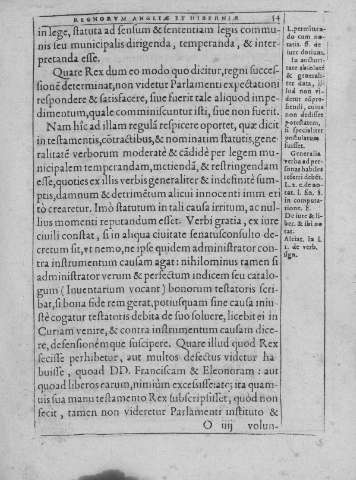 REGNORVM ANGLIAE ET HIBERNIAE 54
in lege, statuta ad sensum & sententiam legis commu-
nis seu municipalis dirigenda, temperanda, & inter-
pretanda esse.
Quare Rex dum eo modo quo dicitur, regni succes-
sionē determinat, non videtur Parlamenti expectationi
respondere & satisfacere, siue fuerit tale aliquod impe-
dimentum, quale comminiscuntur isti, siue non fuerit.
Nam hûc ad illam regulā respicere oportet, quæ dicit
in testamentis, cōtractibus, & nominatim statutis, gene-
ralitatē verborum moderatè & cādidè per legem mu-
nicipalem temperandam, metiendā, & restringendam
esse, quoties ex illis verbis generaliter & indefinitè sum-
ptis, damnum & detrimētum alicui innocenti imm eri
tò crearetur. Imò statutum in tali causa irritum, ac nul-
lius momenti reputandum esset. Verbi gratia, ex iure
ciuili constat, si in aliqua ciuitate senatusconsulto de-
cretum sit, et nemo, ne ipse quidem administrator con-
tra instrumentum causam agat: nihilominus tamen si
administrator verum & perfectum indicem seu catalo-
gum (Inuentarium vocant) bonorum testatoris scri-
bat, si bona fide rem gerat, potiusquam sine causa iniu-
stè cogatur testatoris debita de suo soluere, licebit ei in
Curiam venire, & contra instrumentum causam dice-
re, defensionémque suscipere. Quare illud quod Rex
fecisse perhibetur, aut multos defectus videtur ha-
buisse, quoad DD. Franciscam & Eleonoram: aut
quoad liberos earum, nimiùm excesisse: atq; ita quam-
uis sua manu testamento Rex subscripsisset, quòd non
fecit, tamen non videretur Parlamenti instituto &
O iiij volun-
L. permitten-
do cum no-
tatis. ff. de
iure dotium.
In auctori-
tate absolutè
& generali-
ter data, il-
lud non vi-
detur cōpre-
hendi, cuius
non dedisset
potestatem,
si specialiter
postulatum
fuisset.
Generalia
verba ad per-
sonas habiles
referri debēt.
De iure & li-
ber. & ibi no-
tat.
Alciat. in l.
1. de verb.
sign.